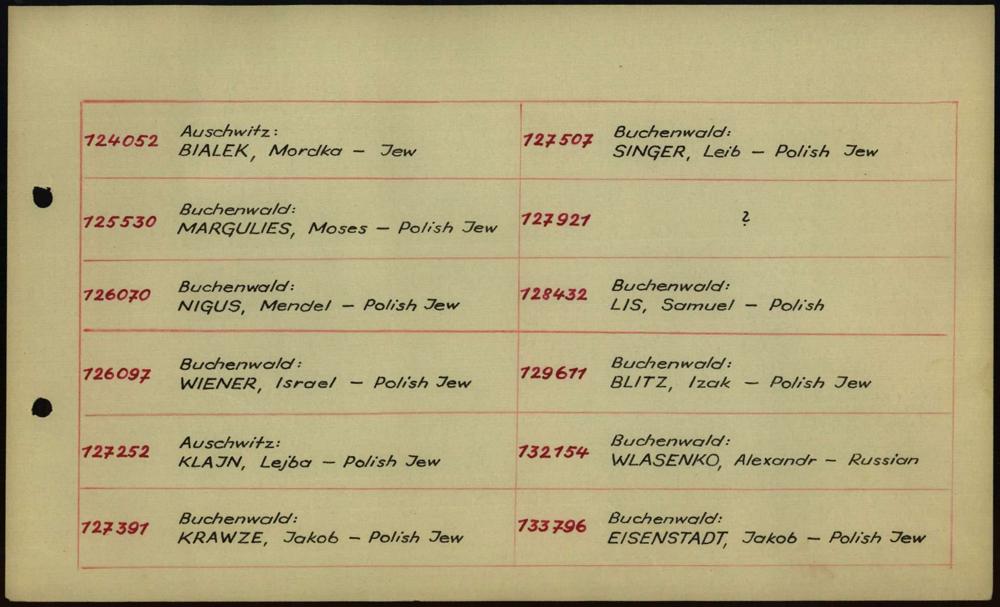 124052
Auschwitz:
BIALEK, Mordka — Jew
125530
Buchenwald:
MARGULIES, Moses — Polish Jew
126070
Buchenwald:
NIGUS, Mendel — Polish Jew
126097
Buchenwald:
WIENER, Israel — Polish Jew
127252
Auschwitz:
KLAJN, Lejba — Polish Jew
127391
Buchenwald:
KRAWZE, Jakob — Polish Jew
127507
Buchenwald:
SINGER, Leib — Polish Jew
127921
?
128432
Buchenwald:
LIS, Samuel — Polish
129611
Buchenwald:
BLITZ, Izak — Polish Jew
132154
Buchenwald:
WLASENKO, Alexandr — Russian
133796
Buchenwald:
EISENSTADT, Jakob — Polish Jew